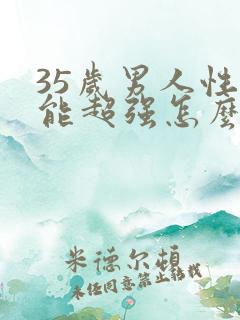 35歲男人性
能超强怎麼
米德尔頓
未经同意禁止转载